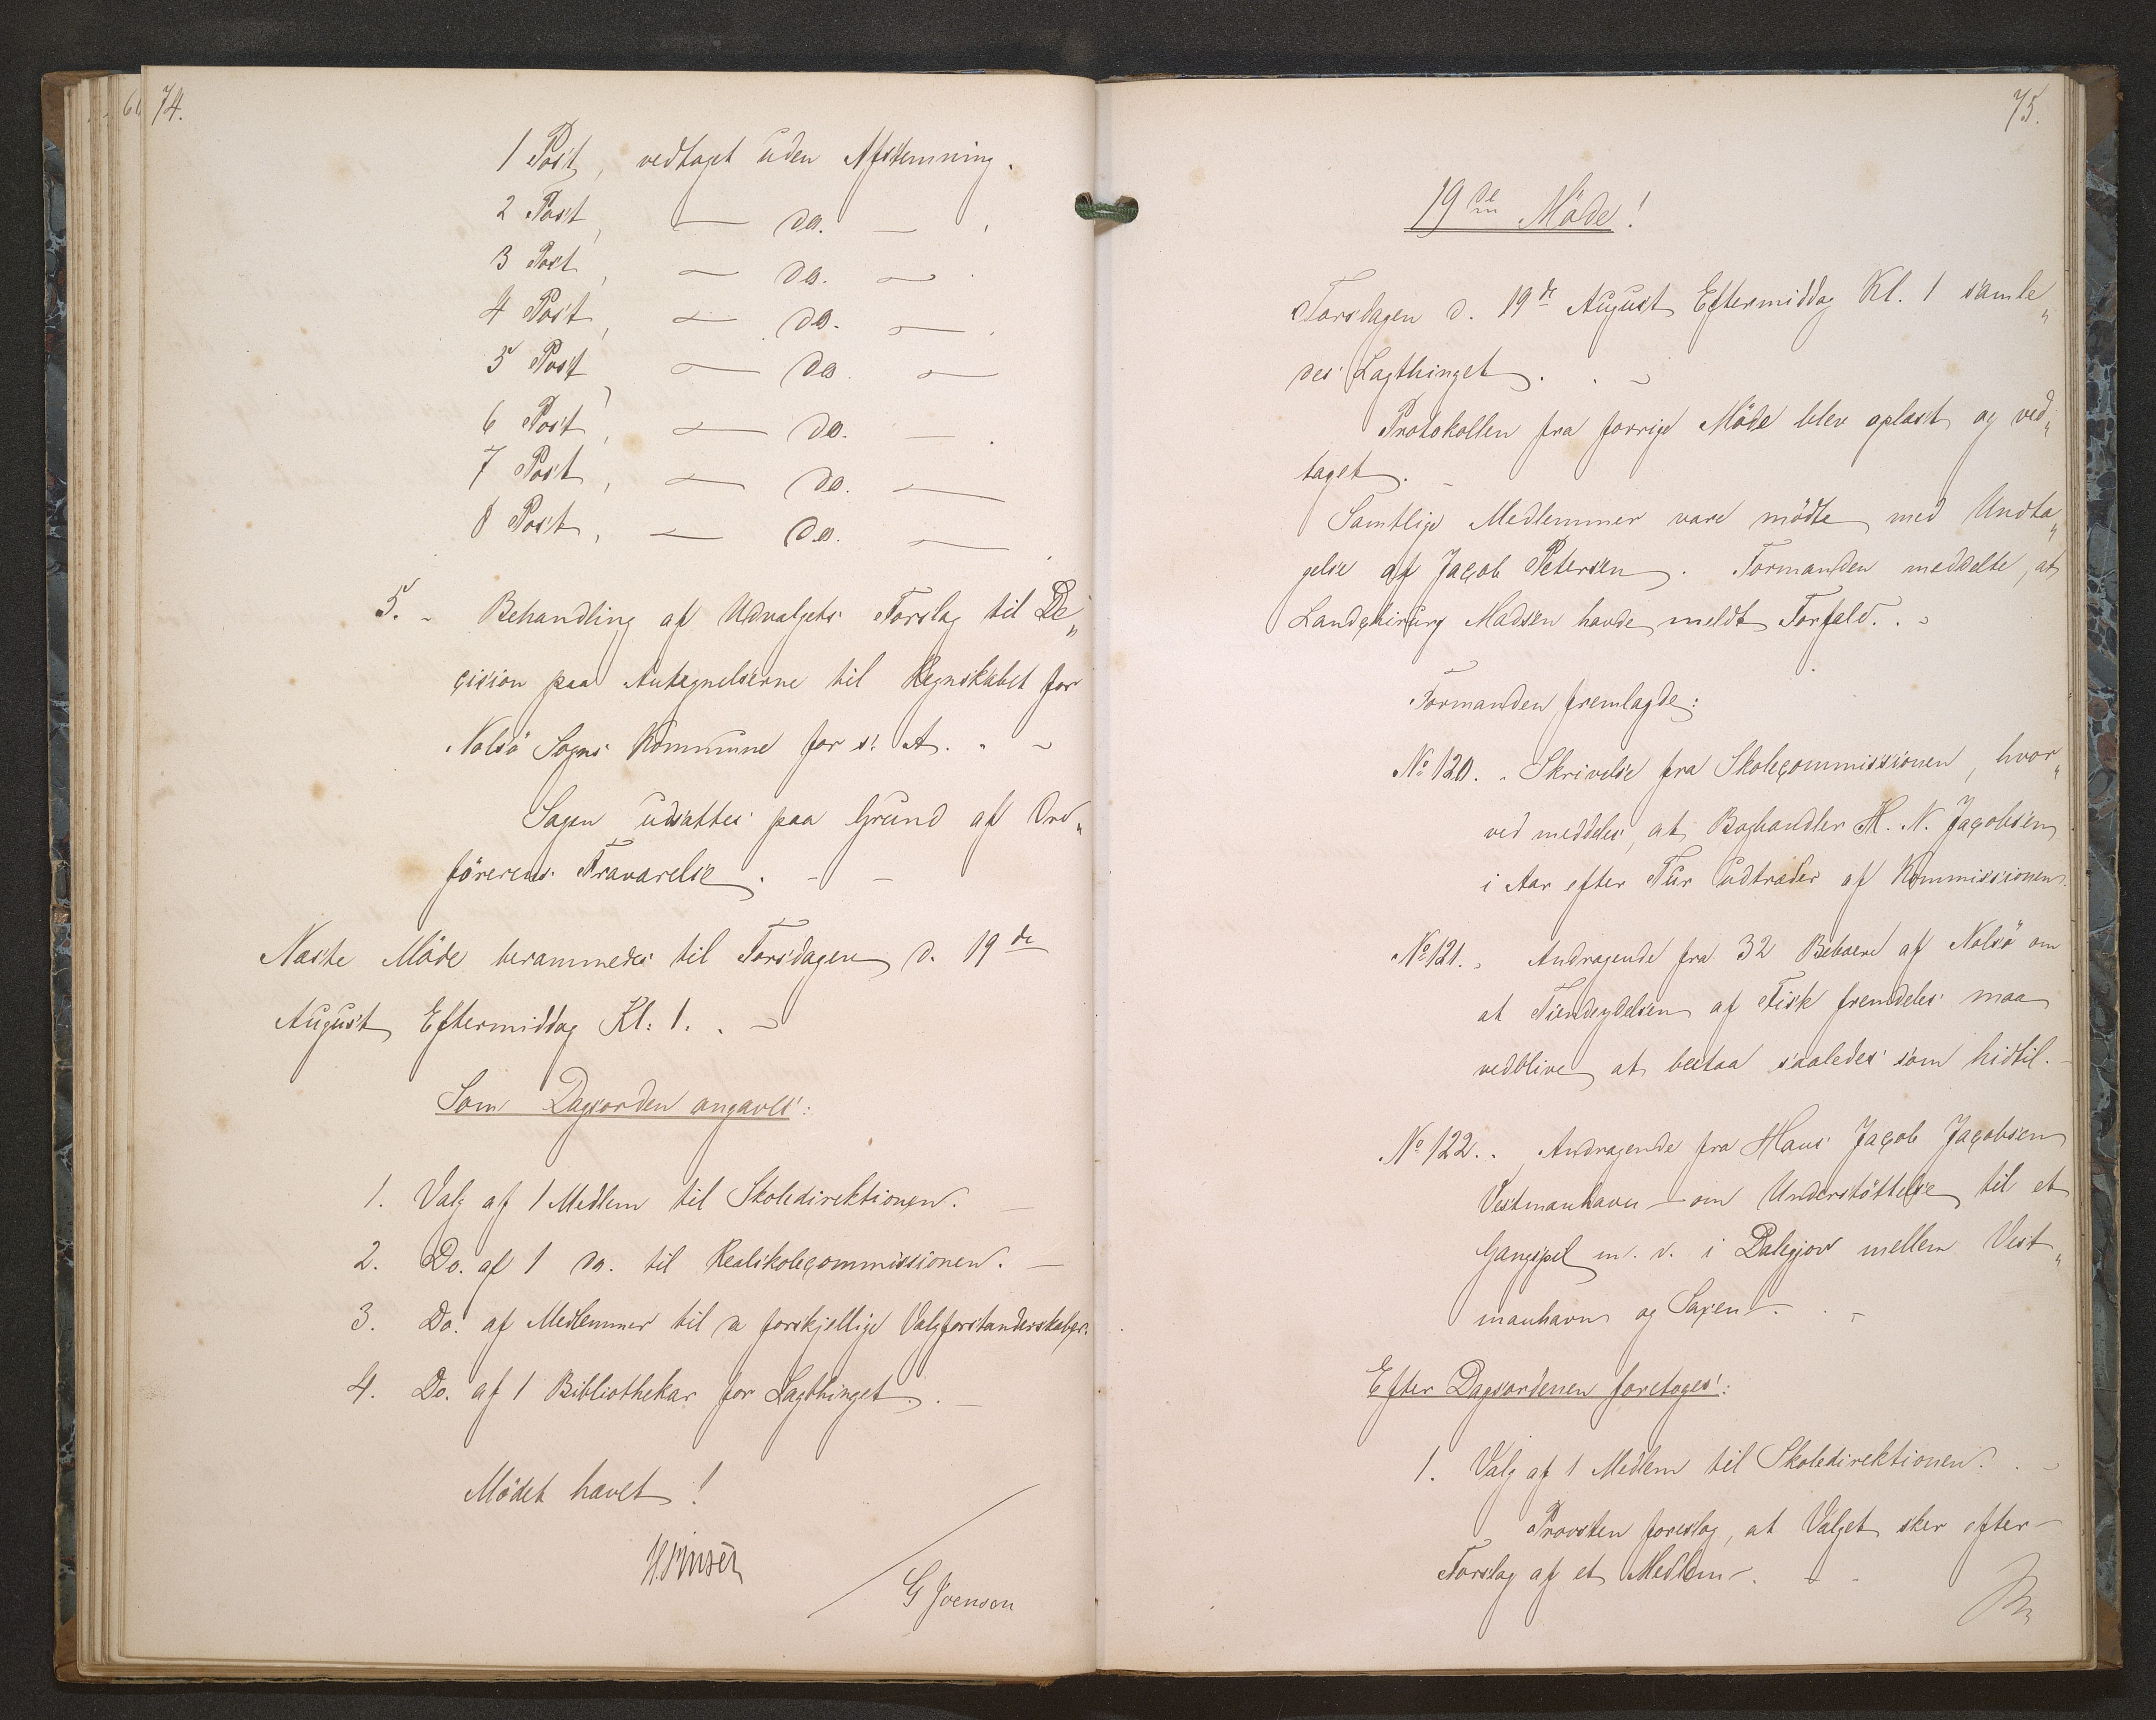 74.
1 Post, vedtaget uden Afstemning.
2 Post, — do. —.
3 Post, — do. —.
4 Post, — do. —.
5 Post, — do. —
6 Post, — do. —.
7 Post, — do. —
8 Post, — do. —.
5. - Behandling af Udvalgets Forslag til De„
cision paa Antegnelserne til Regnskabet for
Nolsö Sogns Kommune for s. A. - -
Sagen udsattes paa Grund af Ord„
förerens Fraværelse. - -
Næste Möde berammedes til Torsdagen d. 19de
August Eftermiddag Kl: 1. . -
Som Dagsorden angaves:
1. Valg af 1 Medlem til Skoledirektionen. -
2. Do. af 1 do. til Realskolecommissionen. -
3. Do. af Medlemmer til de forskjellige Valgforstanderskaber.
4. Do. af 1 Bibliothekar for Lagthinget. . -
Mödet hævet!
G Joensen
75.
19de Möde!
Torsdagen d. 19de August Eftermiddag Kl. 1 samle„
des Lagthinget. . -
Protokollen fra forrige Möde blev oplæst og ved„
taget. -
Samtlige Medlemmer vare mödte med Undta„
gelse af Jacob Petersen. Formanden meddelte, at
Landchirurg Madsen havde meldt Forfald. . -
Formanden fremlagde:
No 120. - Skrivelse fra Skolecommissionen, hvor„
ved meddeles, at Boghandler H. N. Jacobsen
i Aar efter Tur udtræder af Kommissionen.
No 121. - Andragende fra 32 Beboere af Nolsö om
at Tiendeydelsen af Fisk fremdeles maa
vedblive at bestaa saaledes som hidtil. -
No 122. . Andragende fra Hans Jacob Jacobsen
Vestmanhavn - om Understöttelse til et
Gangspel m. v. i Dalegjov mellem Vest„
manhavn og Saxen -. . -
Efter Dagsordenen foretoges:
1. Valg af 1 Medlem til Skoledirektionen. . -
Provsten foreslog, at Valget sker efter -
Forslag af et Medlem -. - -